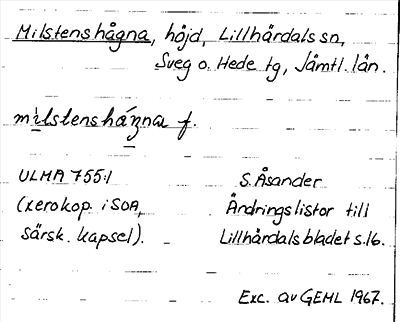 Milstenshågna, höjd, Lillhärdals sn,
Sveg o. Hede tg, Jämtl. län.
mìlstenshágna f.
ULMA 755:1
(xerokop. i SOA,
särsk. kapsel).
S. Åsander
Ändringslistor till
Lillhärdalsbladet s. 16.
Exc. av GEML 1967.